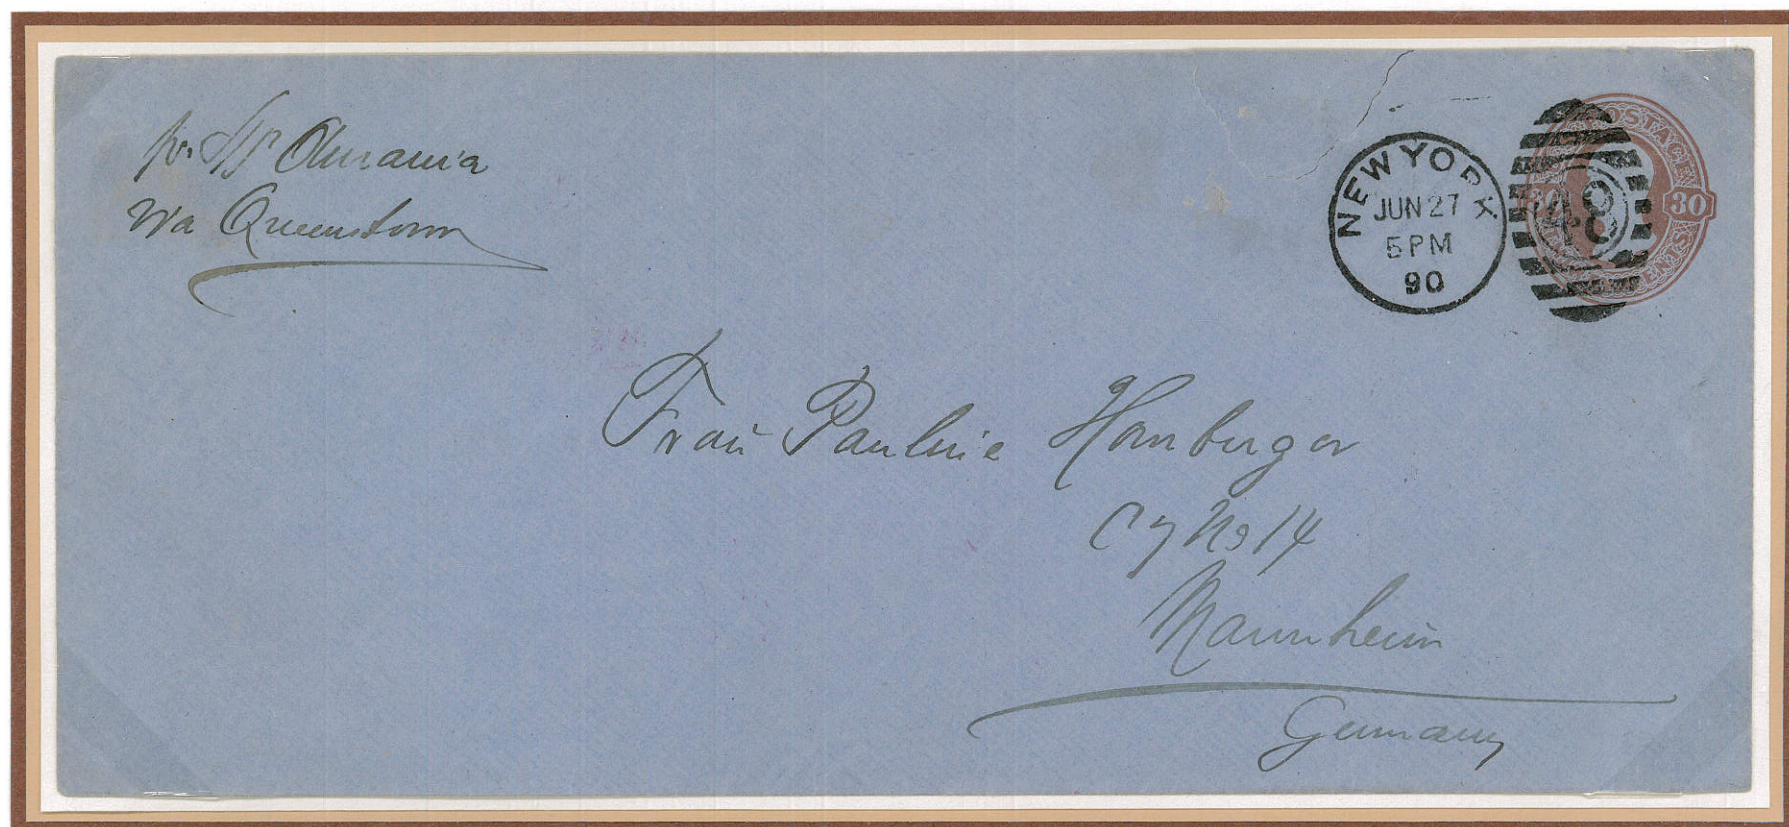 pr SS Aurania
via Queenstown
NEW YORK
JUN 27
5 PM
90
48
POSTAGE
30 30
CENTS
Frau Pauline Homburger
C 7 No 14
Mannheim
Germany